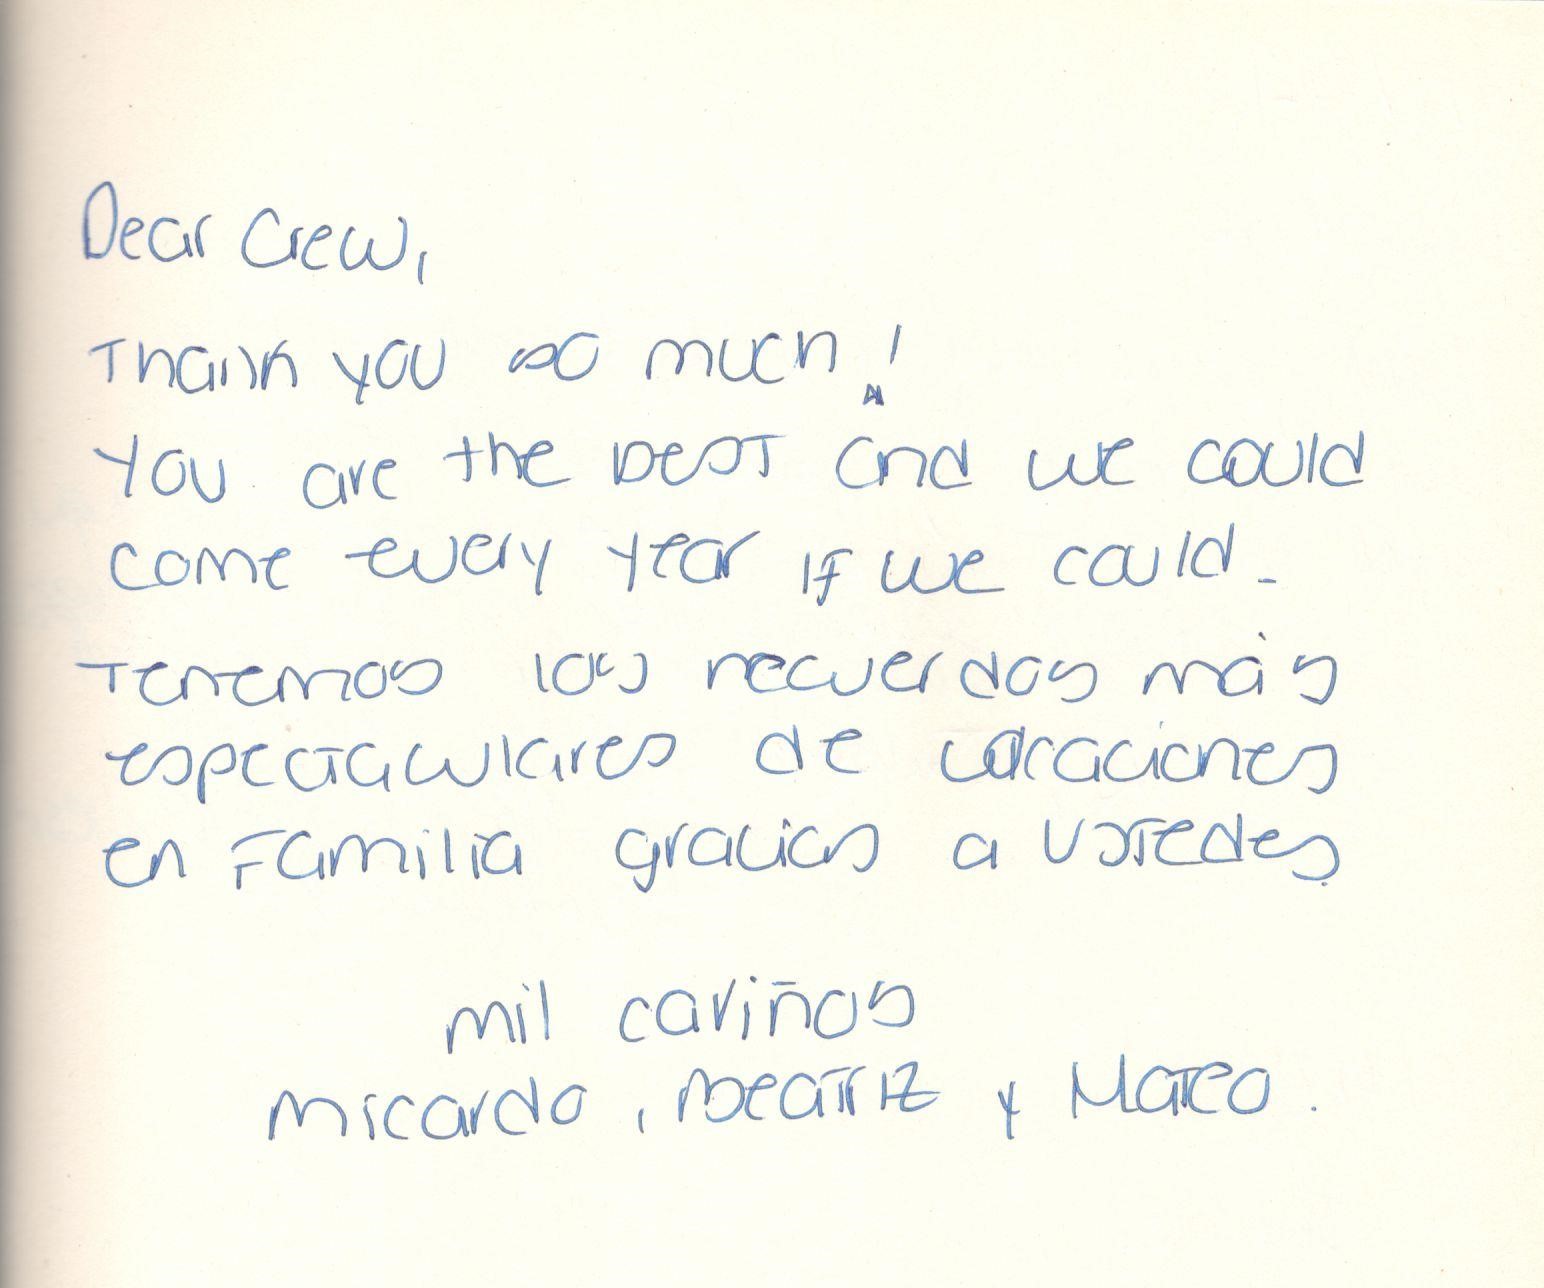 Dear Crew,
Thank you so much!
You are the best and we could
come every year if we could.
Tenemos los recuerdos más
espectaculares de vacaciones
en Familia gracias a Ustedes.
mil cariños
Micardo, Beatriz y Mateo.